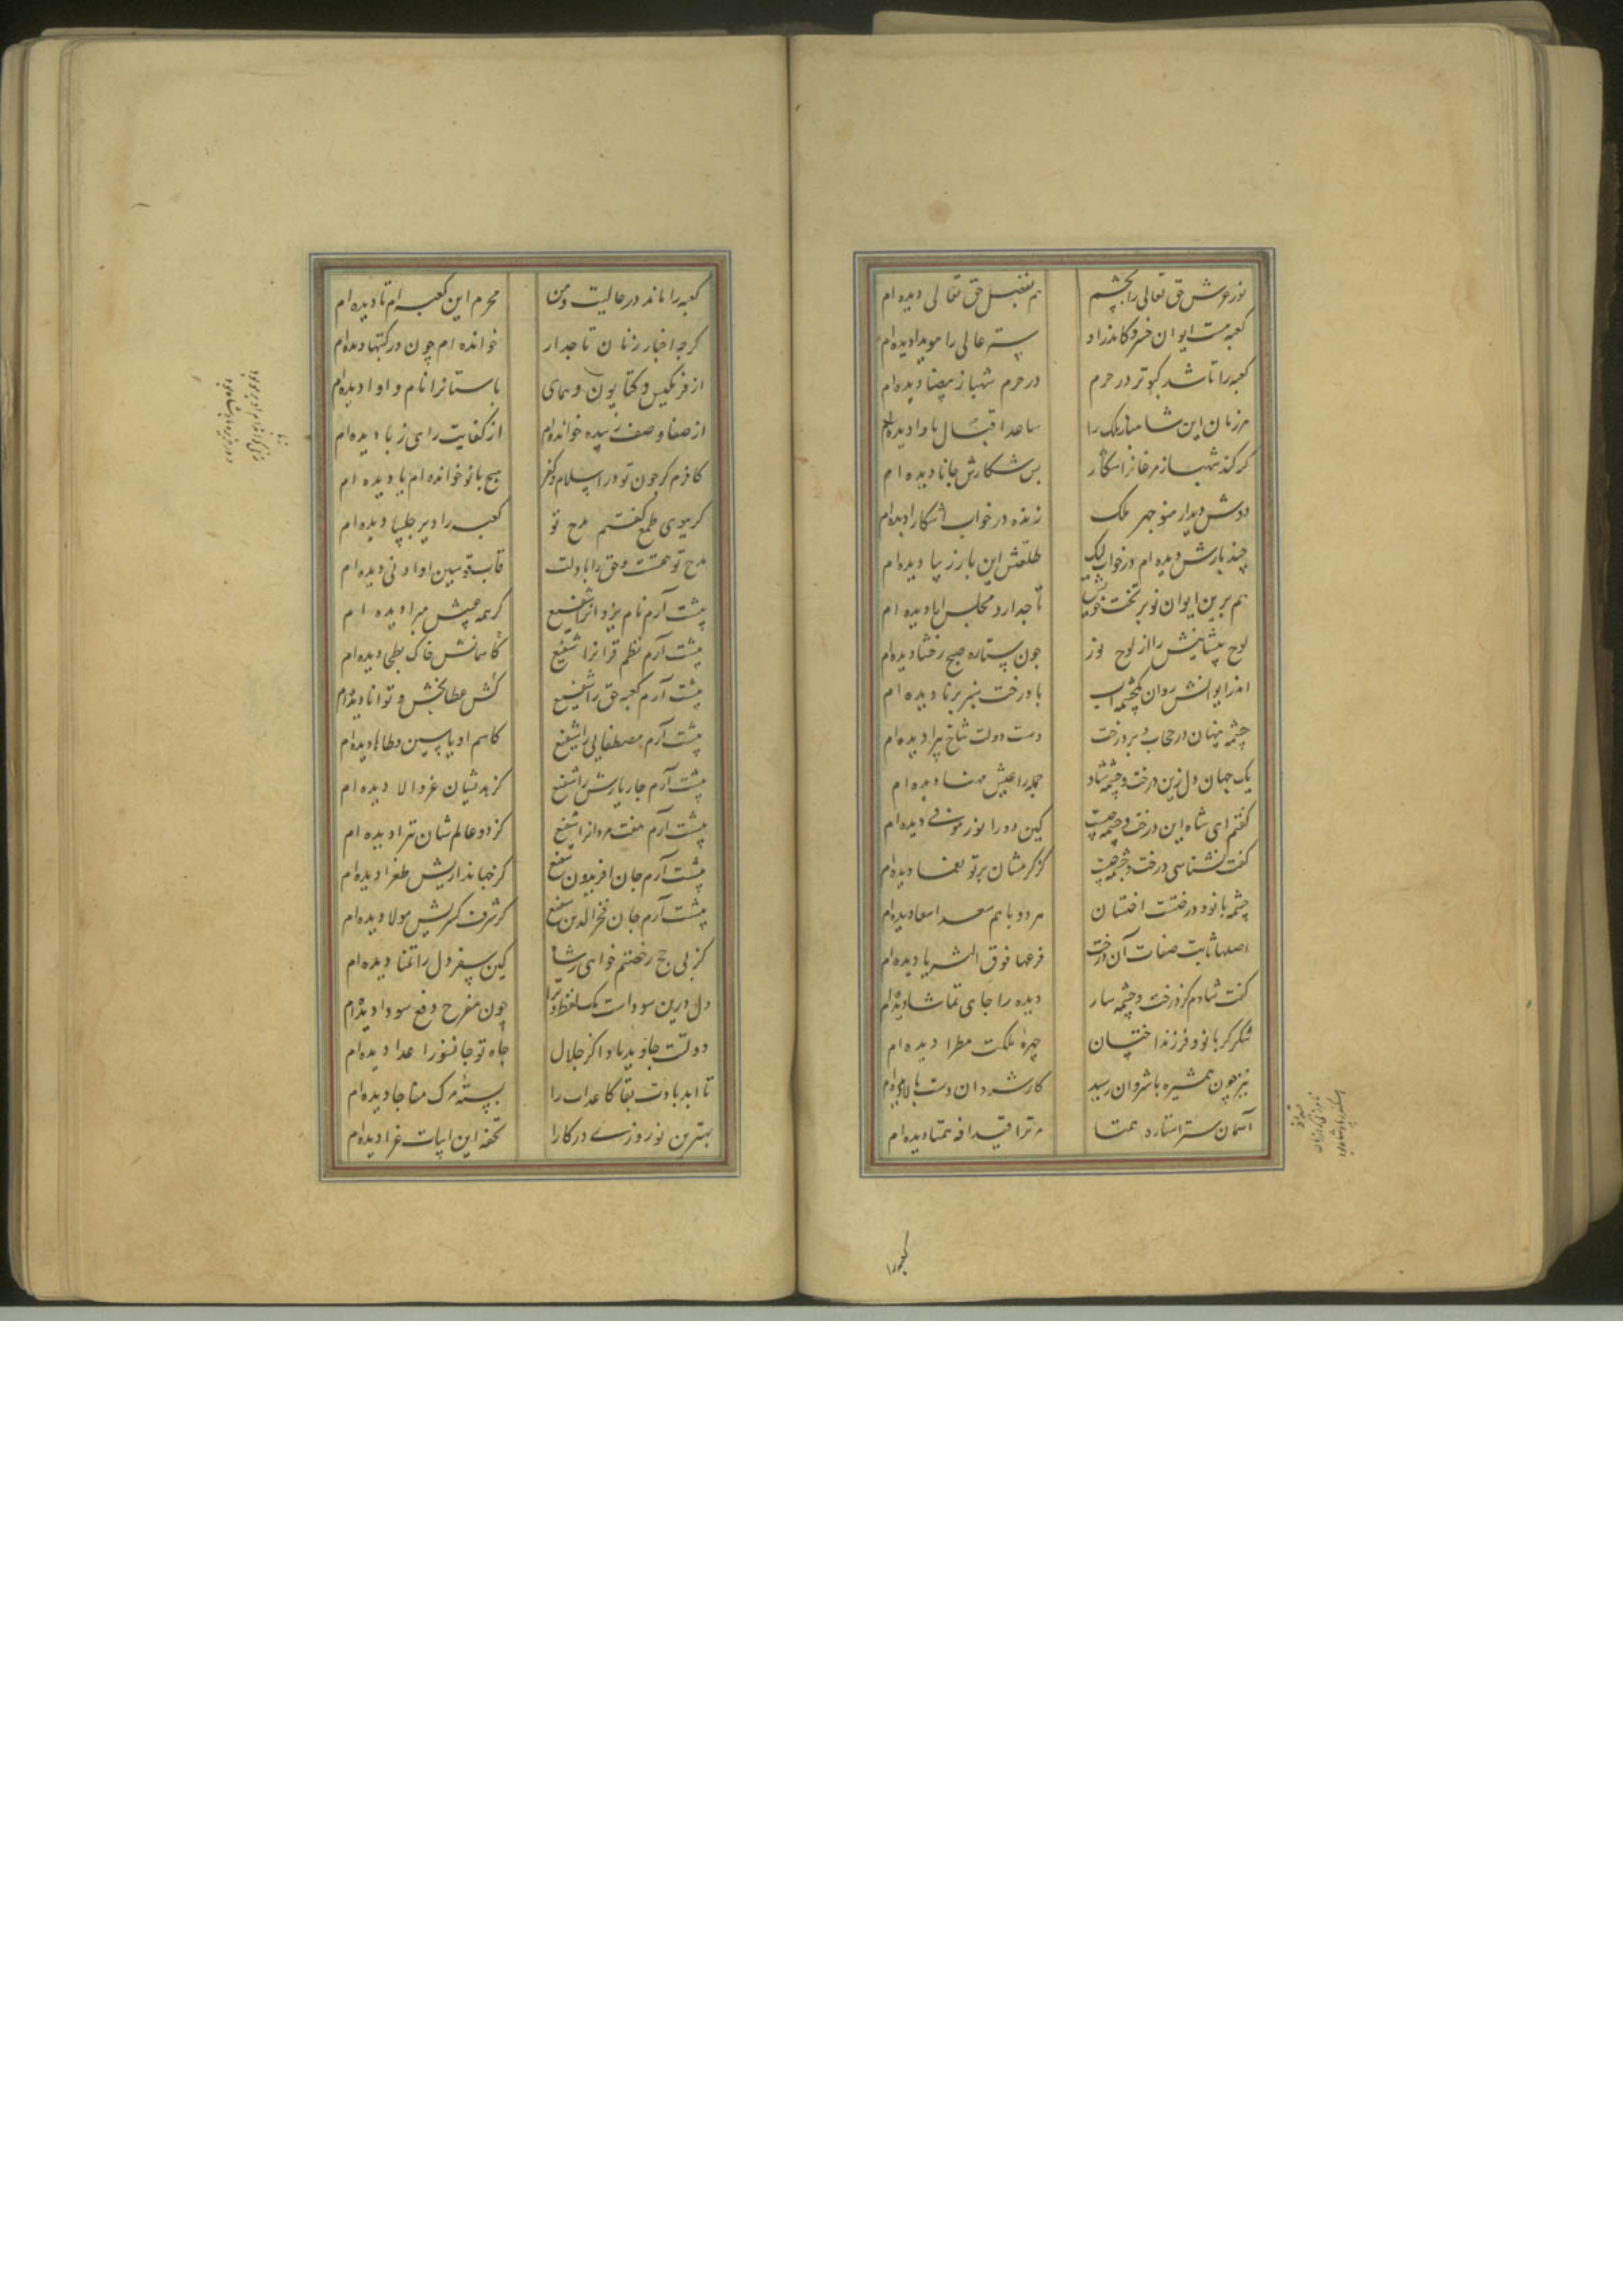 نور عرش حق تعالی را بچشم هم بفضل حق تعالی دیده ام
کعبه است ایوان خسرو کاندر او ستر عالی را هویدا دیده ام
کعبه را باشد کبوتر در حرم در حرم شهباز بیضا دیده ام
هر زمان این شاهباز ملک را ساعد اقبال ماوا دیده ام
گر کند شهباز مرغانرا شکار بس شکارش جانها دیده ام
دوش دیدار منوچهر ملک زنده در خواب آشکارا دیده ام
چند بارش دیده ام در خواب لیک طلعتش این بار زیبا دیده ام
هم برین ایوان نو بر تخت خویش تاجدار و مجلس ارا دیده ام
لوح پیشانیش را از لوح نور چون ستاره صبح رخشا دیده ام
اندر ایوانش روان یکچشمه آب با درخت سبز برنا دیده ام
چشمه پنهان در حجاب و بر درخت دست دولت شاخ پیرا دیده ام
یک جهان دل زین درخت و چشمه شاد جمله را عیش مهنا دیده ام
گفتم ای شاه این درخت و چشمه چیست کین دو را نور موفی دیده ام
گفت نشناسی درخت و چشمه چیست کز کرمشان بر تو نعما دیده ام
چشمه بانو و درختست اخستان هر دو با هم سعد اسعا دیده ام
اصلها ثابت صفات آن درخت فرعها فوق الثریا دیده ام
گفت شادم کز درخت و چشمه سار دیده را جای تماشا دیده ام
شکر کز بانو و فرزند اخستان چهره ملکت مطرا دیده ام
نیز چون همشیره با شروان رسید کار شروان دست بالا دیده ام
آسمان ستر استاره همتا مر ترا قیدافه همتا دیده ام
کعبه را ماند در عالیت و من محرم این کعبه ام تا دیده ام
گرچه اخبار زنان تاجدار خوانده ام چون در کتبها دیده ام
از فرنگیس و کتایون و همای باستانرا نام و اوا دیده ام
از صفا وصف زبیده خوانده ام از کفایت رای زبا دیده ام
کافرم گر چون تو در اسلام و کفر هیچ بانو خوانده ام یا دیده ام
گر بوی طمع گفتم مدح تو کعبه را دیر چلیپا دیده ام
مدح تو حقست و حق را با دلت قاب قوسین او ادنی دیده ام
پیشت آرم نام یزدانرا شفیع کز همه عیبش مبرا دیده ام
پیشت آرم نظم قرانرا شفیع
پیشت آرم کعبه حق را شفیع کاسمانش خاک بطحی دیده ام
کش عطابخش و توانا دیده ام
پیشت آرم مصطفایی را شفیع کاسم او یاسین و طاها دیده ام
پیشت آرم چار یارش را شفیع کز هدیشان عز و الا دیده ام
پیشت آرم هفت مردانرا شفیع کز دو عالم شان تبرا دیده ام
پیشت آرم جان افریدون شفیع کز جهانداریش طغرا دیده ام
پیشت آرم جان فخر الدین شفیع کز شرف کسریش مولا دیده ام
کز پی حج رخصتم خواهی ز شاه کین سفر دل را تمنا دیده ام
دل درین سوداست یک لفظ ترا چون مفرح دفع سودا دیده ام
دولتت جاوید باد اکز جلال جاه تو جانسوز اعدا دیده ام
تا ابد بادت بقا کاعدات را بسته مرگ مفاجا دیده ام
بهترین نوروزی درگه را تحفه این ابیات غرا دیده ام